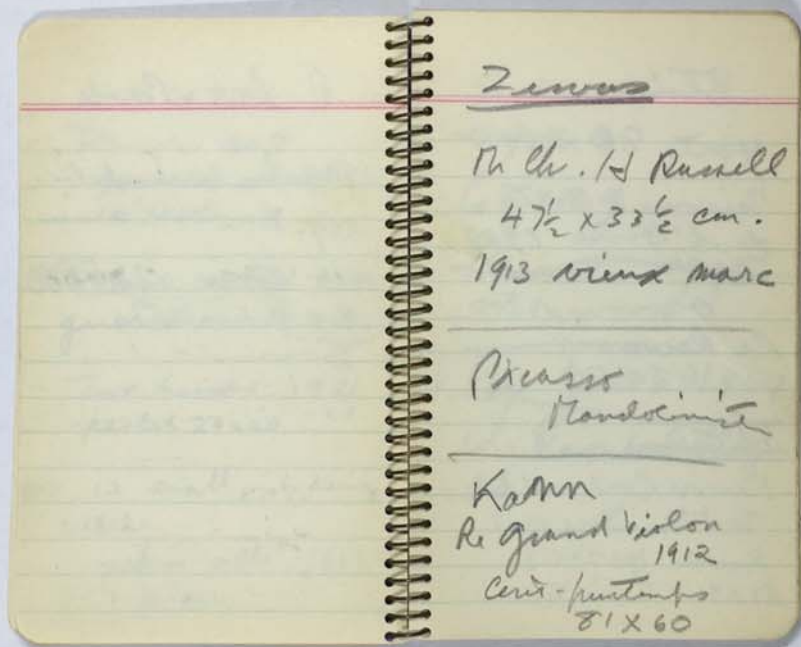 Zervos
M Ch. H Russell
47 1/2 x 33 1/2 cm.
1913 vieux marc
Picasso
Mandoliniste
Kahn
Re grand Violon
1912
Ceret-printemps
81 X 60